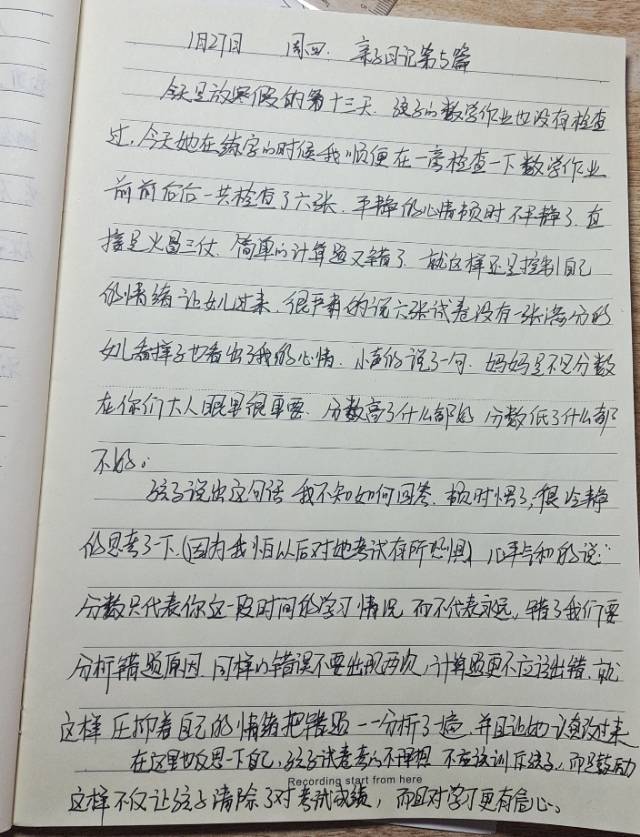 1月27日 周四. 亲子日记第5篇
今天是放寒假的第十三天. 孩子的数学作业也没有检查
过, 今天她在练字的时候我顺便在一旁检查一下数学作业
前前后后一共检查了六张. 平静的心情顿时不平静了. 直
接是火冒三仗. 简单的计算题又错了. 就这样还是控制自己
的情绪让女儿过来. 很严肃的说六张试卷没有一张满分的
女儿看样子也看出了我的心情. 小声的说了一句. 妈妈是不是分数
在你们大人眼里很重要. 分数高了什么都好 分数低了什么都
不好。
孩子说出这句话 我不知如何回答. 顿时愣了, 很冷静
的思考了一下.(因为我怕以后对她考试有所恐惧) 心平气和的说:
分数只代表你这一段时间的学习情况 而不代表永远, 错了我们要
分析错题原因. 同样的错误不要出现两次, 计算题更不应该出错. 就
这样 压抑着自己的情绪把错题 一一分析了遍, 并且让她认真改过来
在这里也反思一下自己, 孩子试卷考的不理想 不应该训斥孩子, 而是鼓励
Recording start from here
这样不仅让孩子清除了对考试成绩, 而且对学习更有信心。